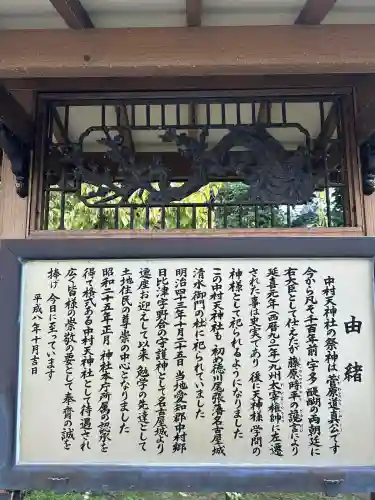 由緒
中村天神社の祭神は菅原道真公です
今から凡そ千百年前、宇多 醍醐の両朝廷に
右大臣として仕えたが 藤原時平の讒言により
延喜元年(西暦九〇一年)九州太宰権師に左遷
された事は史実であり 後に天神様 学問の
神様として祀られるようになりました
この中村天神社も 初め徳川尾張藩名古屋城
清水御門の杜に祀られていました
明治四十三年十月二十五日 当地愛知郡中村郷
日比津字野合の守護神として名古屋城より
遷座お迎えして以来 勉学の先達として
土地住民の尊崇の中心となりました
昭和二十五年正月 神社本庁所属の認承を
得て格式ある中村天神社として待遇され
広く皆様の崇敬の要として奉斎の誠を
捧げ 今日に至っています
平成八年十月吉日